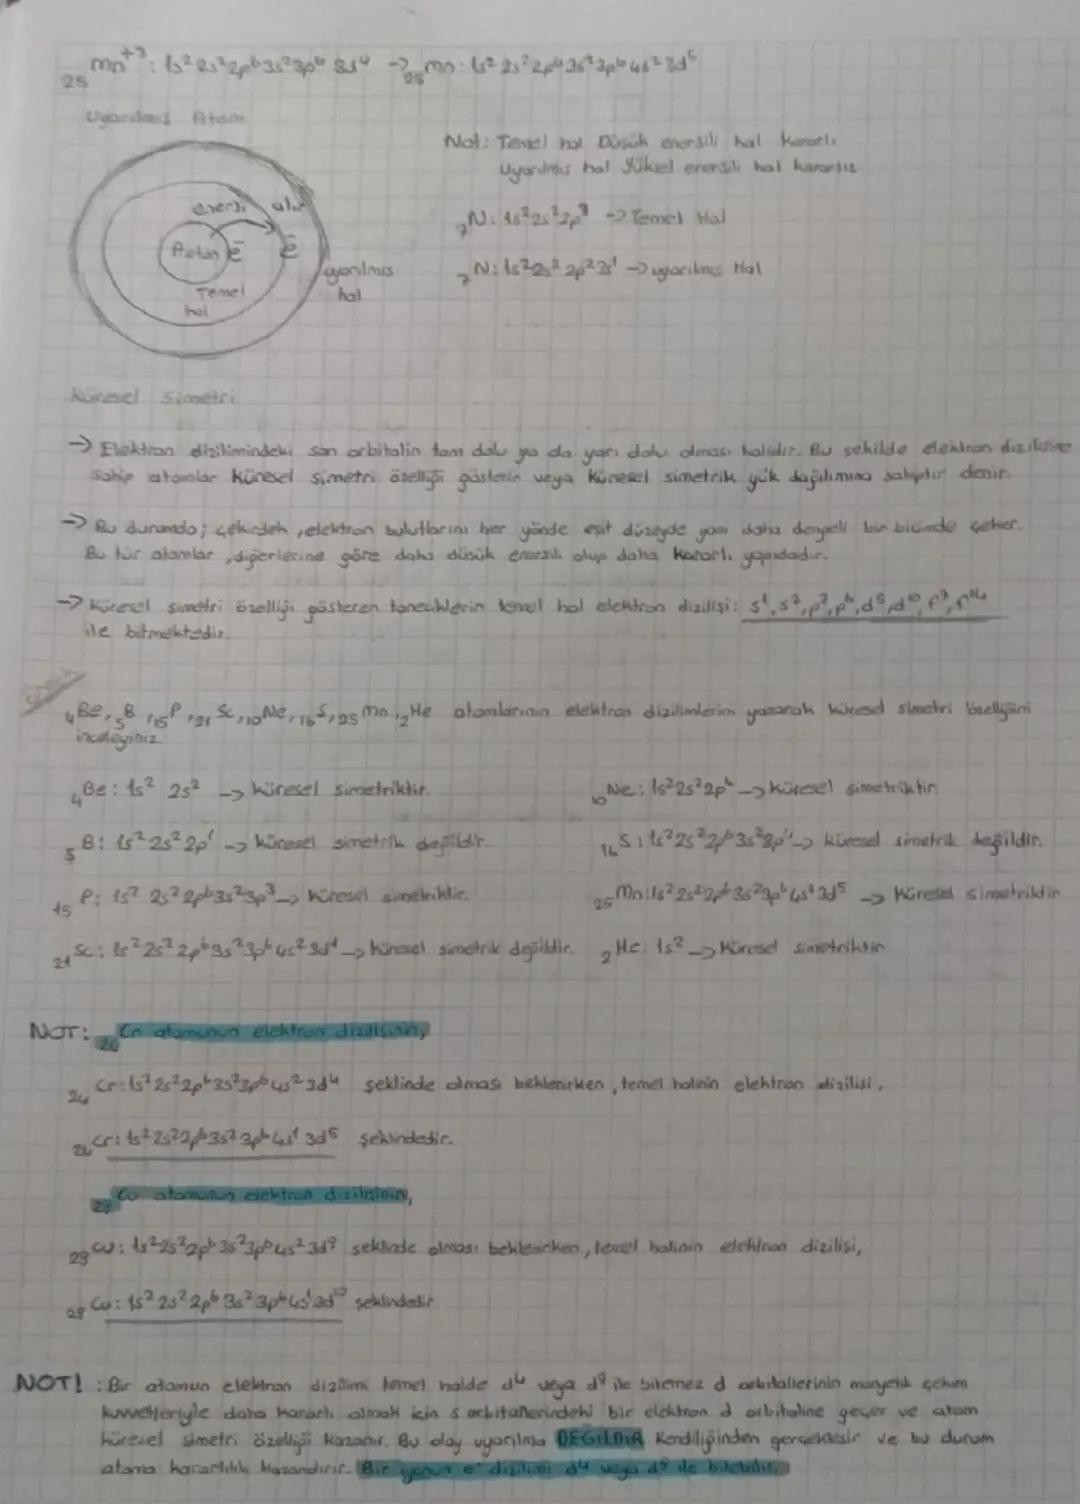 25Mn⁺³: 1s² 2s² 2p⁶ 3s² 3p⁶ 3d⁴ → 25Mn: 1s² 2s² 2p⁶ 3s² 3p⁶ 4s² 3d⁵
Uyarılmış Atom
Not: Temel hal Düşük enersili hal kararlı
Uyarılmış hal Yüksel enersili hal kararsız
enerji alır
Atom e⁻ e⁻
Temel hal
uyarılmış hal
7N: 1s² 2s² 2p³ → Temel Hal
7N: 1s² 2s² 2p² 3s¹ → uyarılmış Hal
Küresel Simetri
→ Elektron dizilimindeki son orbitalin tam dolu ya da yarı dolu olması halidir. Bu şekilde elektron dizilisine
sahip atomlar küresel simetri özelliği gösterir veya küresel simetrik yük dağılımına sahiptir denir.
→ Bu durumda; çekirdek, elektron bulutlarını her yönde eşit düzeyde yani daha dengeli bir biçimde çeker.
Bu tür atomlar, diğerlerine göre daha düşük enersili olup daha kararlı yapıdadır.
→ Küresel simetri özelliği gösteren taneciklerin temel hal elektron dizilişi: s¹, s², p³, p⁶, d⁵, d¹⁰, f⁷, f¹⁴
ile bitmektedir.
4Be, 5B, 15P, 21Sc, 10Ne, 16S, 25Mn, 2He atomlarının elektron dizilimlerini yazarak küresel simetri özelliğini
inceleyiniz.
4Be: 1s² 2s² → küresel simetriktir.
10Ne: 1s² 2s² 2p⁶ → küresel simetriktir
5B: 1s² 2s² 2p¹ → küresel simetrik değildir.
16S: 1s² 2s² 2p⁶ 3s² 3p⁴ → küresel simetrik değildir.
15P: 1s² 2s² 2p⁶ 3s² 3p³ → küresel simetriktir.
25Mn: 1s² 2s² 2p⁶ 3s² 3p⁶ 4s² 3d⁵ → Küresel simetriktir
21Sc: 1s² 2s² 2p⁶ 3s² 3p⁶ 4s² 3d¹ → küresel simetrik değildir.
2He: 1s² → Küresel simetriktir
NOT: 24Cr atomunun elektron dizilişinin,
24Cr: 1s² 2s² 2p⁶ 3s² 3p⁶ 4s² 3d⁴ şeklinde olması beklenirken, temel halinin elektron dizilisi,
24Cr: 1s² 2s² 2p⁶ 3s² 3p⁶ 4s¹ 3d⁵ şeklindedir.
29Cu atomunun elektron dizilisinin,
29Cu: 1s² 2s² 2p⁶ 3s² 3p⁶ 4s² 3d⁹ seklinde olması beklenirken, temel halinin elektron dizilisi,
29Cu: 1s² 2s² 2p⁶ 3s² 3p⁶ 4s¹ 3d¹⁰ şeklindedir
NOT! : Bir atomun elektron dizilimi temel halde d⁴ veya d⁹ ile bitemez d orbitallerinin manyetik çekim
kuvvetleriyle daha kararlı olmak için s orbitallerindeki bir elektron d orbitaline geçer ve atom
küresel simetri özelliği kazanır. Bu olay uyarılma DEĞİLDİR Kendiliğinden gerçeklesir ve bu durum
atoma kararlılık kazandırır. Bir iyonun e⁻ dizilimi d⁴ veya d⁹ ile bitebilir.